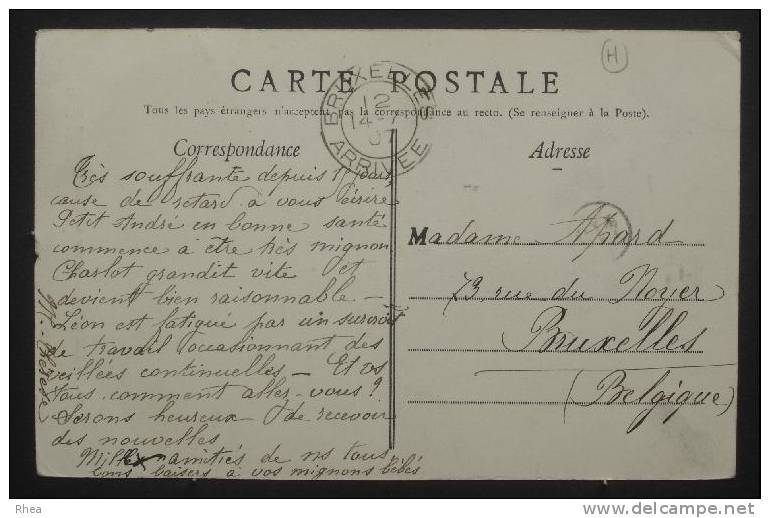 H
CARTE POSTALE
Tous les pays étrangers n'acceptent pas la correspondance au recto. (Se renseigner à la Poste).
BRUXELLES
12
14-
07
ARRIVEE
Correspondance
Très souffrante depuis jours
cause de retard à vous écrire
Petit André en bonne santé
commence à être très mignon
Charlot grandit vite et
devient bien raisonnable —
Léon est fatigué par un surcroit
de travail occasionnant des
veillées continuelles — Et vs
tous comment allez-vous ?
Serons heureux de recevoir
des nouvelles
Mille amitiés de ns tous
bons baisers à vos mignons bébés
Adresse
Madame
73 rue du Noyer
Bruxelles
(Belgique)
Rhea
www.delcampe.net